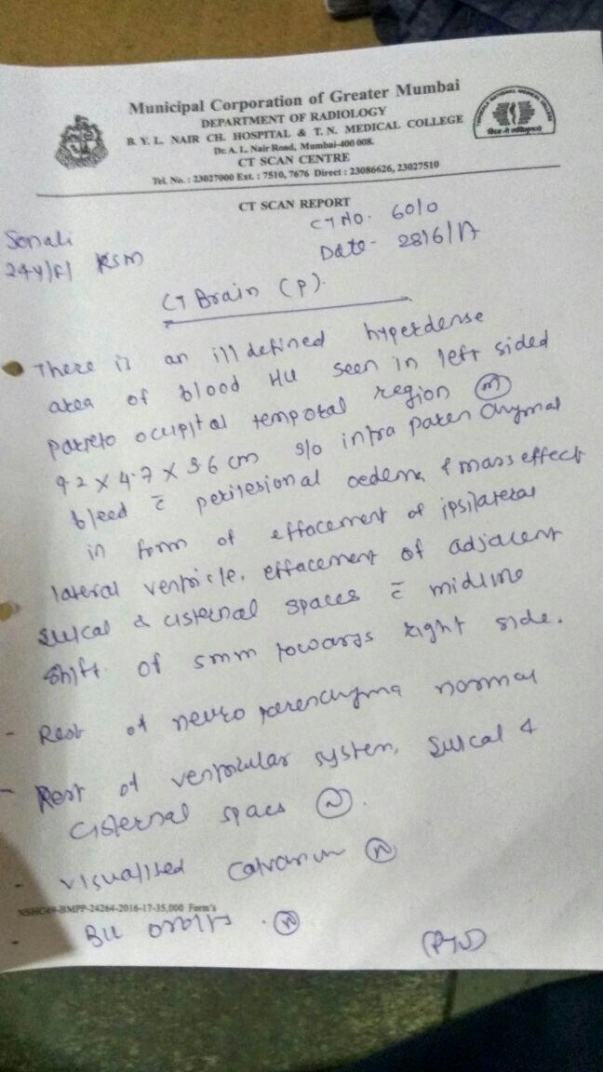 Municipal Corporation of Greater Mumbai
DEPARTMENT OF RADIOLOGY
B. Y. L. NAIR CH. HOSPITAL & T. N. MEDICAL COLLEGE
Dr. A. L. Nair Road, Mumbai-400 008.
CT SCAN CENTRE
Tel. No. : 23027000 Ext. : 7510, 7676 Direct : 23086626, 23027510
CT SCAN REPORT
Sonali
24y/F/ RSM
CT NO. 6010
Date - 28/6/17
CT Brain (P).
There is an ill defined hyperdense
area of blood HU seen in left sided
parieto occipital temporal region (m)
9.2 x 4.7 x 3.6 cm s/o intra parenchymal
bleed c̄ perilesional oedema & mass effect
in form of effacement of ipsilateral
lateral ventricle, effacement of adjacent
sulcal & cisternal spaces c̄ midline
shift of 5mm towards right side.
- Rest of neuro parenchyma normal
- Rest of ventricular system, sulcal &
cisternal spaces (N).
- visualised calvarium (N)
NSHC-69-BMPP-24264-2016-17-35,000 Form's
- B/L orbits. (N)